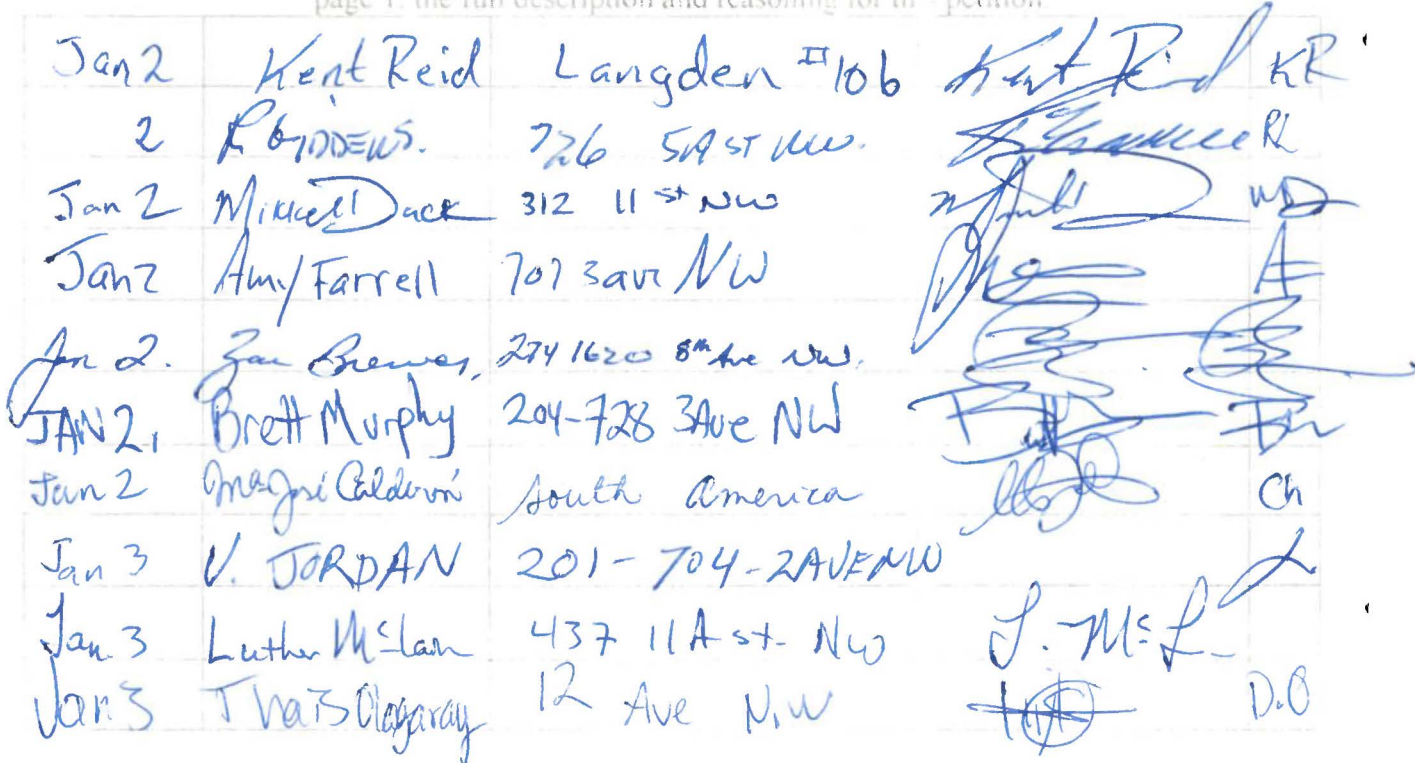 page 1: the full description and reasoning for th petition
Jan 2 Kent Reid Langden #106 Kent Reid KR
2 R GIDDENS. 726 5A ST NW. RL
Jan 2 Mikkell Dack 312 11 st NW MD
Jan 2 Amy Farrell 707 3 ave NW AF
Jan 2. Zan Brewer, 274 1620 8th Ave NW.
JAN 2, Brett Murphy 204-728 3Ave NW
Jan 2 Ma José Calderón south america Ch
Jan 3 V. JORDAN 201-704-2AVENW
Jan 3 Luther McLain 437 11A st- NW L. McL
Jan 3 Thais 12 Ave N.W D.O